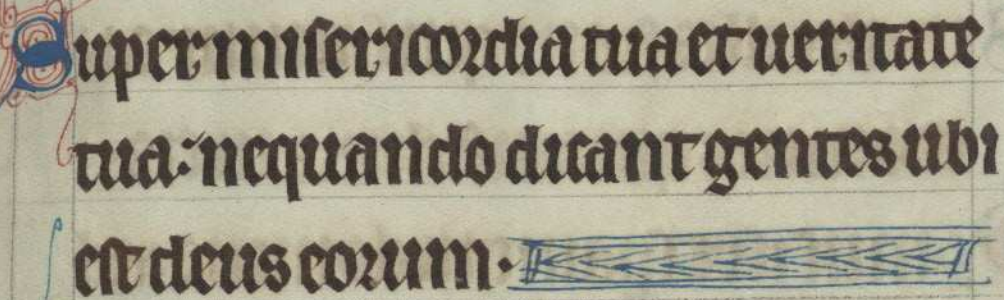 Super misericordia tua et ueritate
tua: nequando dicant gentes ubi
est deus eorum.